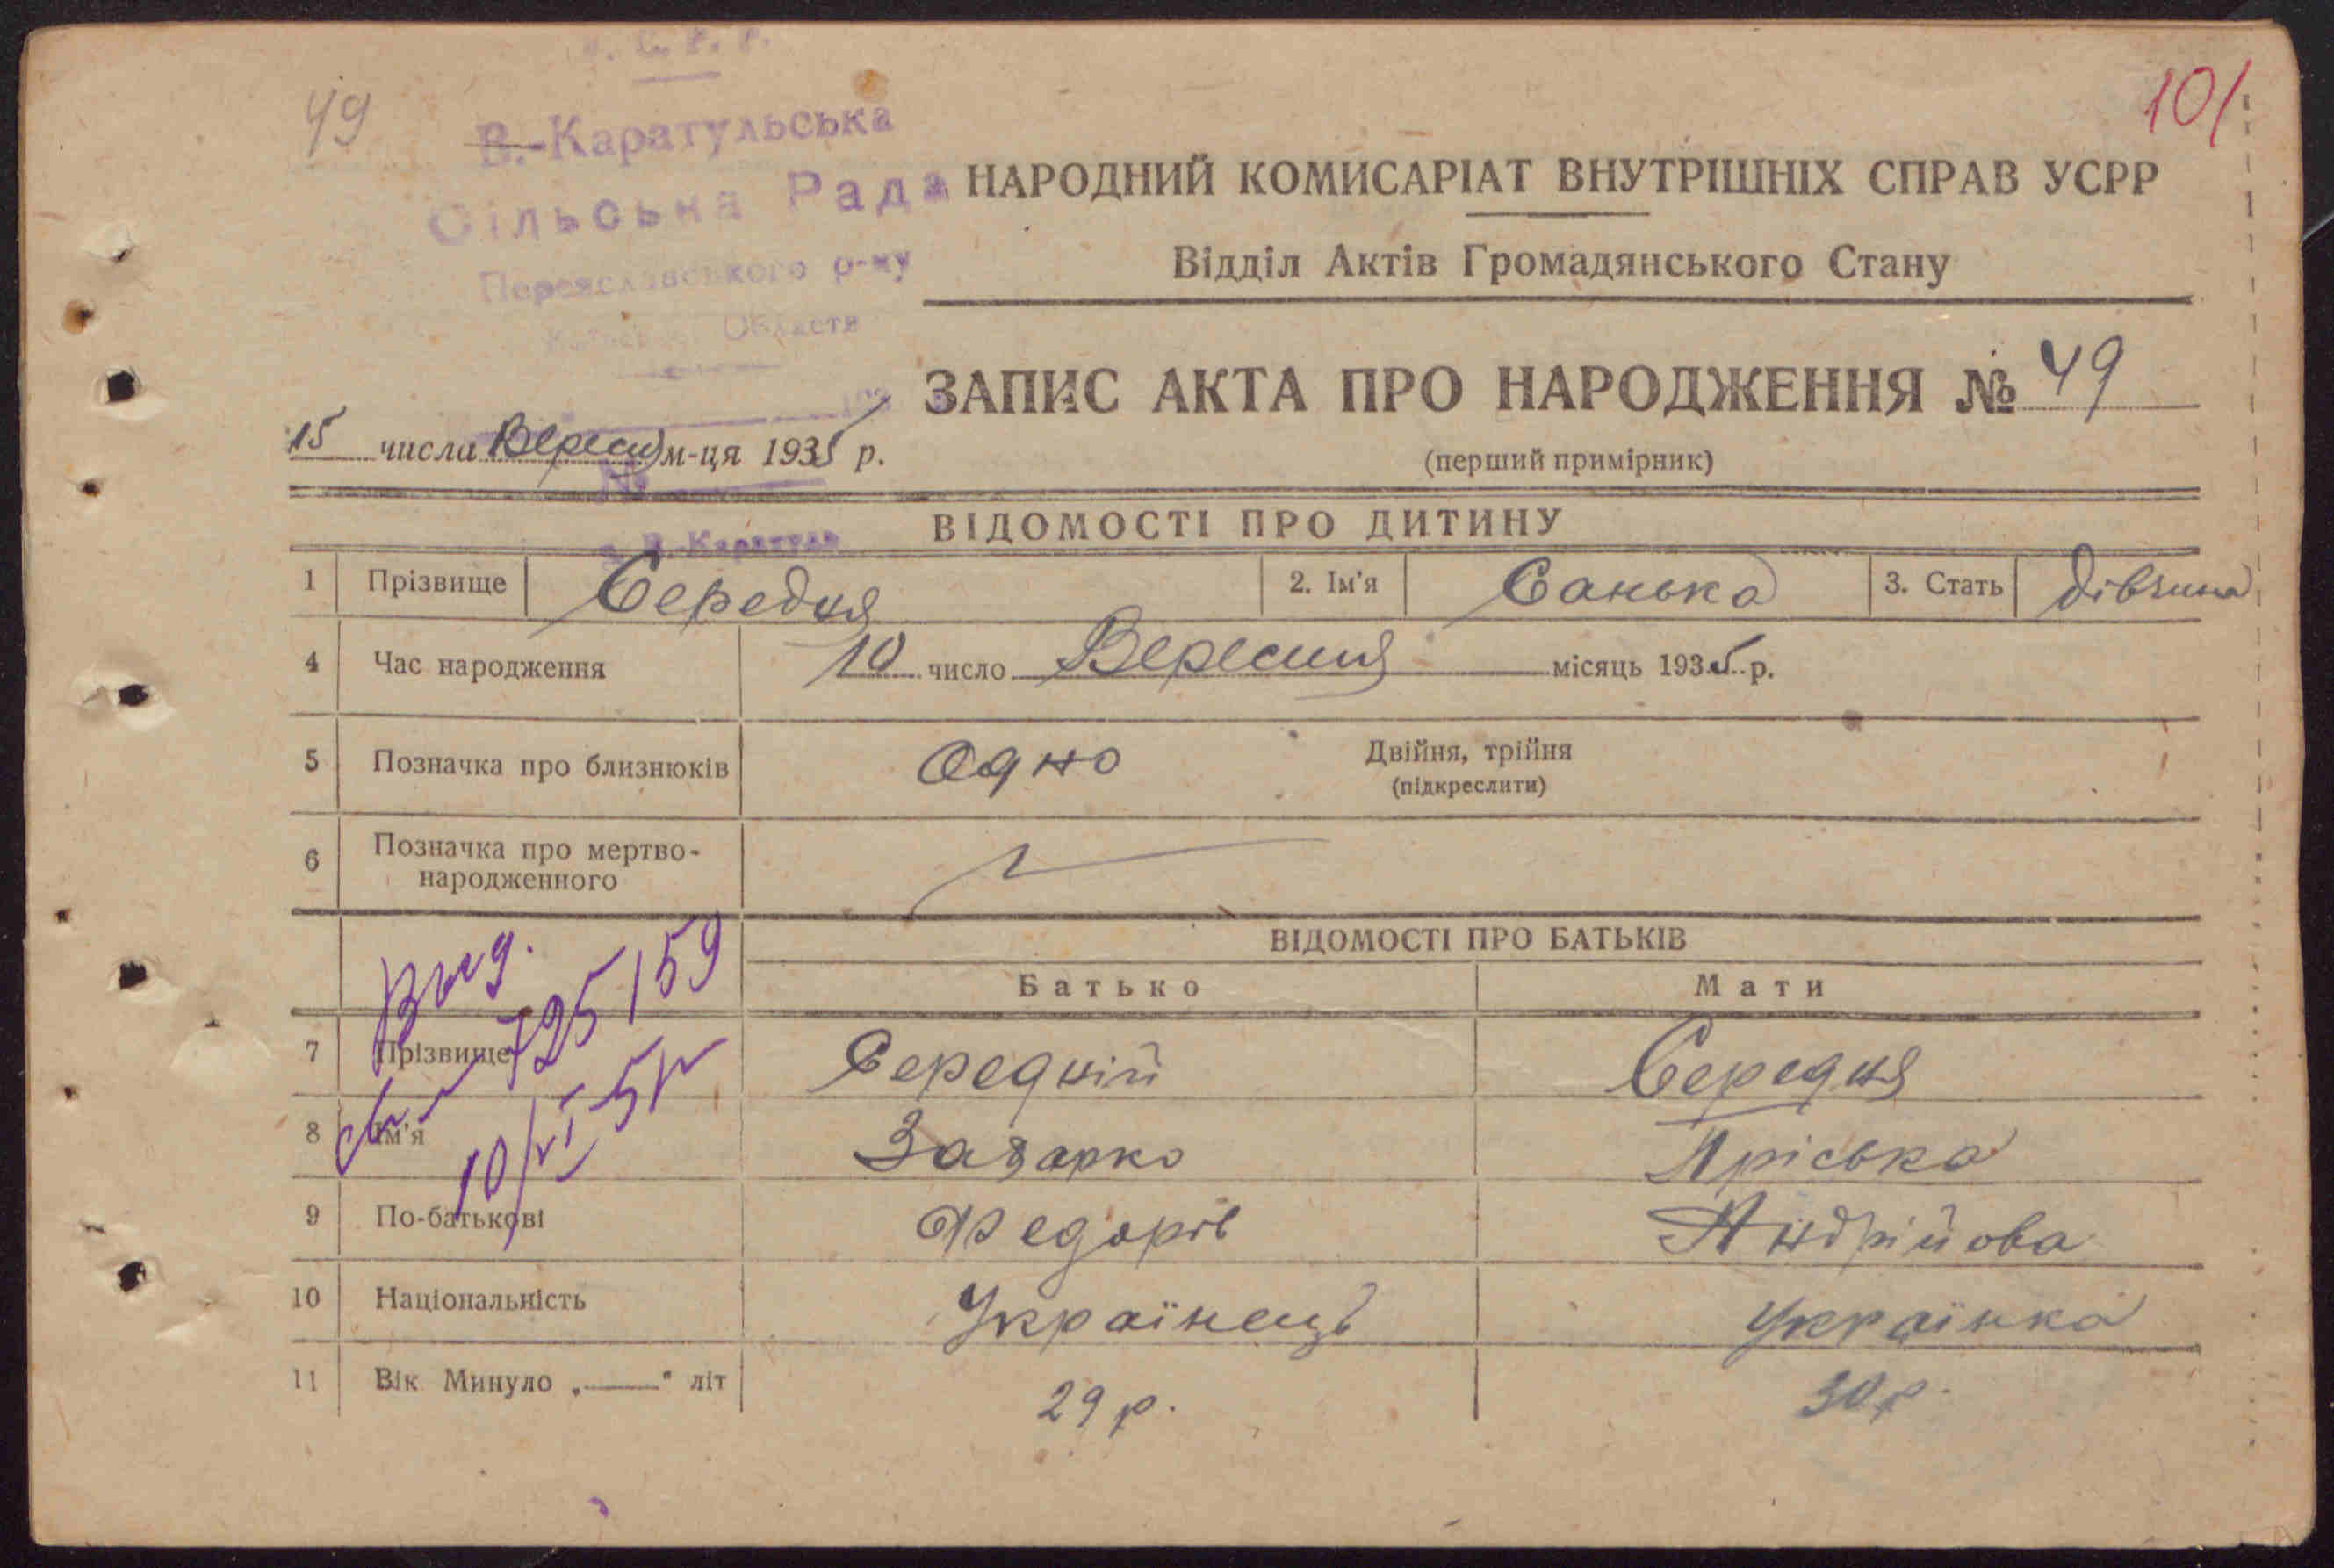 49
101
С. Р. Р.
В.-Каратульська
Сільська Рада
Переяславського р-ну
Области
НАРОДНИЙ КОМИСАРІАТ ВНУТРІШНІХ СПРАВ УСРР
Відділ Актів Громадянського Стану
ЗАПИС АКТА ПРО НАРОДЖЕННЯ № 49
(перший примірник)
15 числа Вересня м-ця 1935 р.
№
В.-Каратуль
ВІДОМОСТІ ПРО ДИТИНУ
1 Прізвище Середня 2. Ім'я Санька 3. Стать дівчина
4 Час народження 10 число Вересня місяць 1935 р.
5 Позначка про близнюків Одно Двійня, трійня
(підкреслити)
6 Позначка про мертво-
народженного
ВІДОМОСТІ ПРО БАТЬКІВ
Батько Мати
Выд.
725159
7 Прізвище Середній Середня
8 Ім'я Захарко Пріська
9 По-батькові Федорів Андрійова
10 Національність Українець Українка
11 Вік Минуло „——" літ 29 р. 30 р.